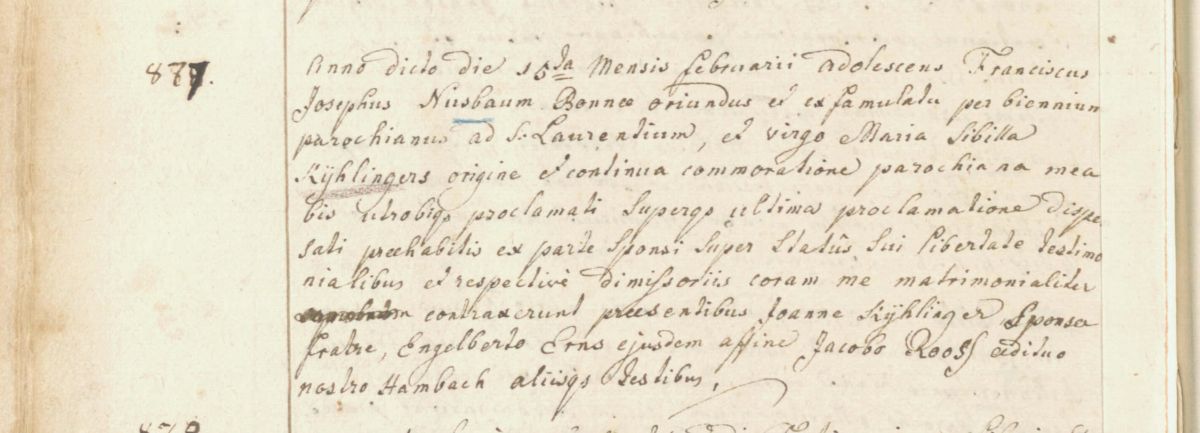 877.
Anno dicto die 15ta Mensis februarii adolescens Franciscus
Josephus Nusbaum Bonnae oriundus et ex famulatu per biennium
parochianus ad S: Laurentium, et virgo Maria Sibilla
Kÿhlingers origine et continua commoratione parochiana mea
bis utrobiqs proclamati superqs ultima proclamatione dispe-
sati praehabitis ex parte Sponsi super Statûs sui libertate testimo
nialibus et respectivè dimissoriis coram me matrimonialiter
contraxerunt praesentibus Joanne Kÿhlinger Sponsae
fratre, Engelberto Erns ejusdem affine Jacobo Rooss aedituo
nostro Hambach aliisqs testibus,